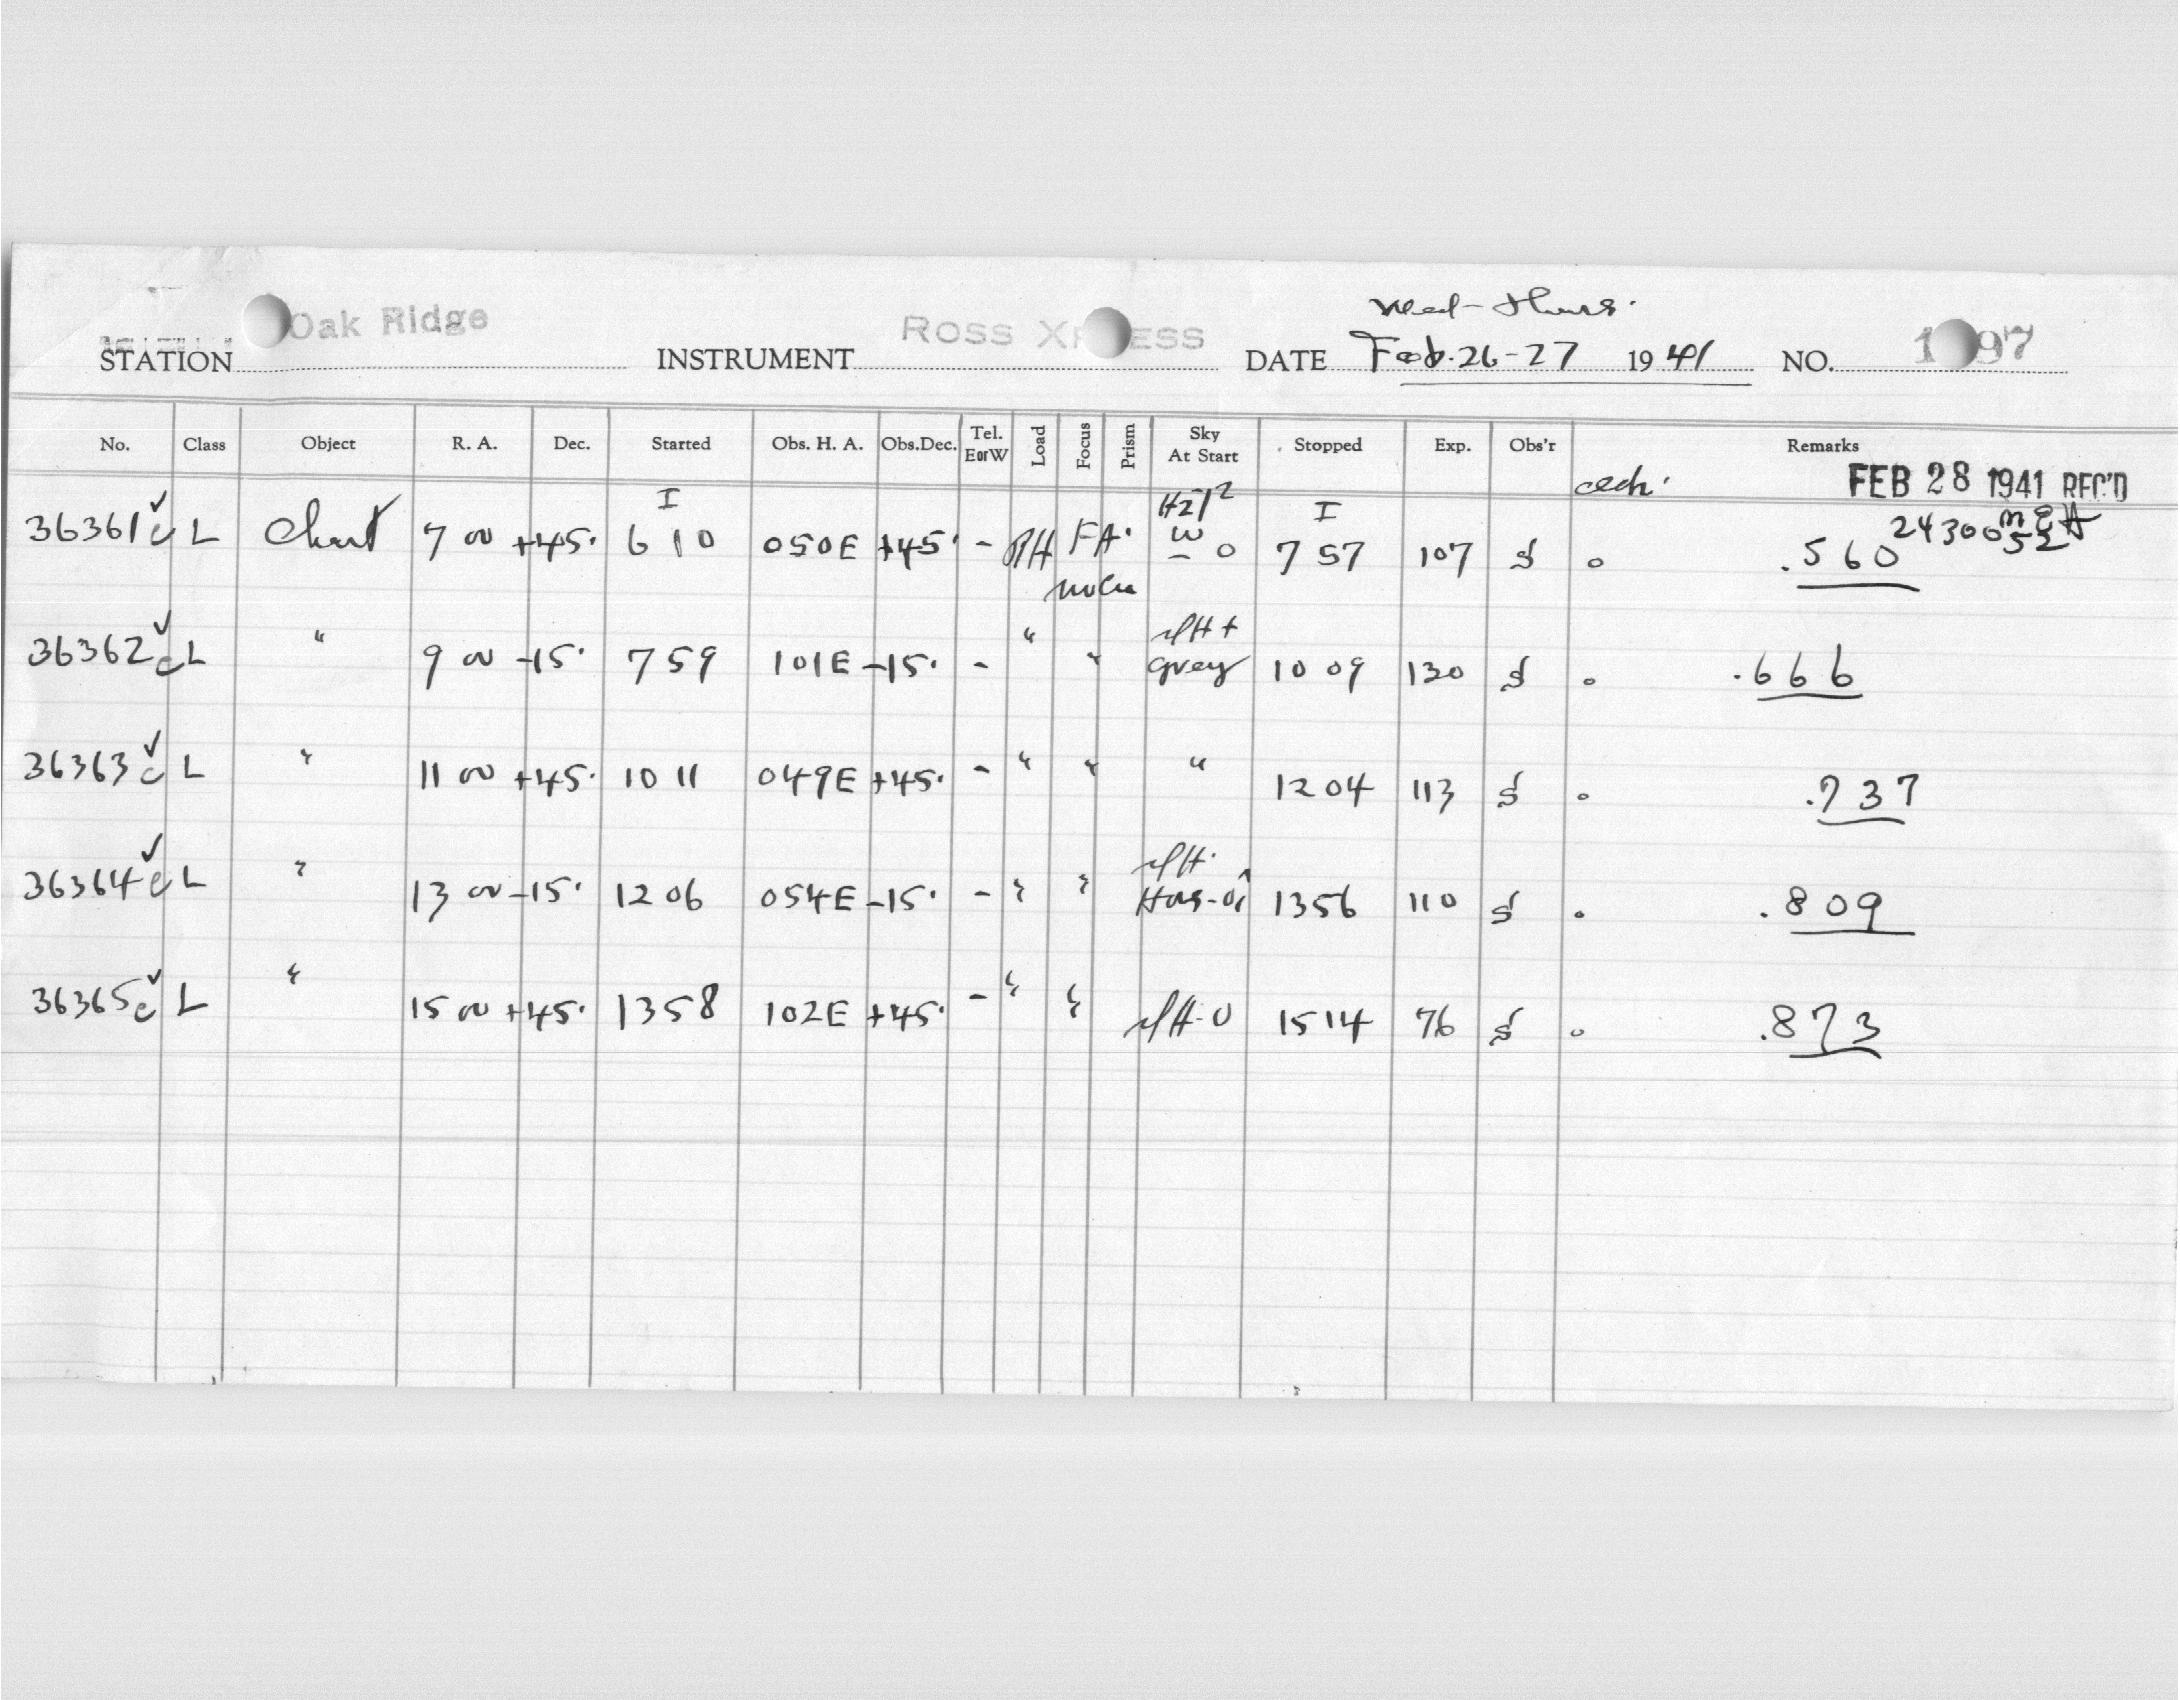 Wed - Thurs.
STATION Oak Ridge INSTRUMENT ROSS X ESS DATE Feb. 26-27 1941 NO. 1 97
No. Class Object R. A. Dec. Started Obs. H. A. Obs.Dec. Tel. EorW Load Focus Prism Sky At Start Stopped Exp. Obs'r Remarks
FEB 28 1941 REC'D
36361 ✓ c L Chart 7 00 +45° I 6 10 050E +45° - FA. 0 I 7 57 107 S 0 .560
36362 ✓ c L " 9 00 -15° 7 59 101E -15° - " " grey 10 09 130 S 0 .666
36363 ✓ c L " 11 00 +45° 10 11 049E +45° - " " " 12 04 113 S 0 .737
36364 ✓ c L " 13 00 -15° 12 06 054E -15° - " " 13 56 110 S 0 .809
36365 ✓ c L " 15 00 +45° 13 58 102E +45° - " " 15 14 76 S 0 .873